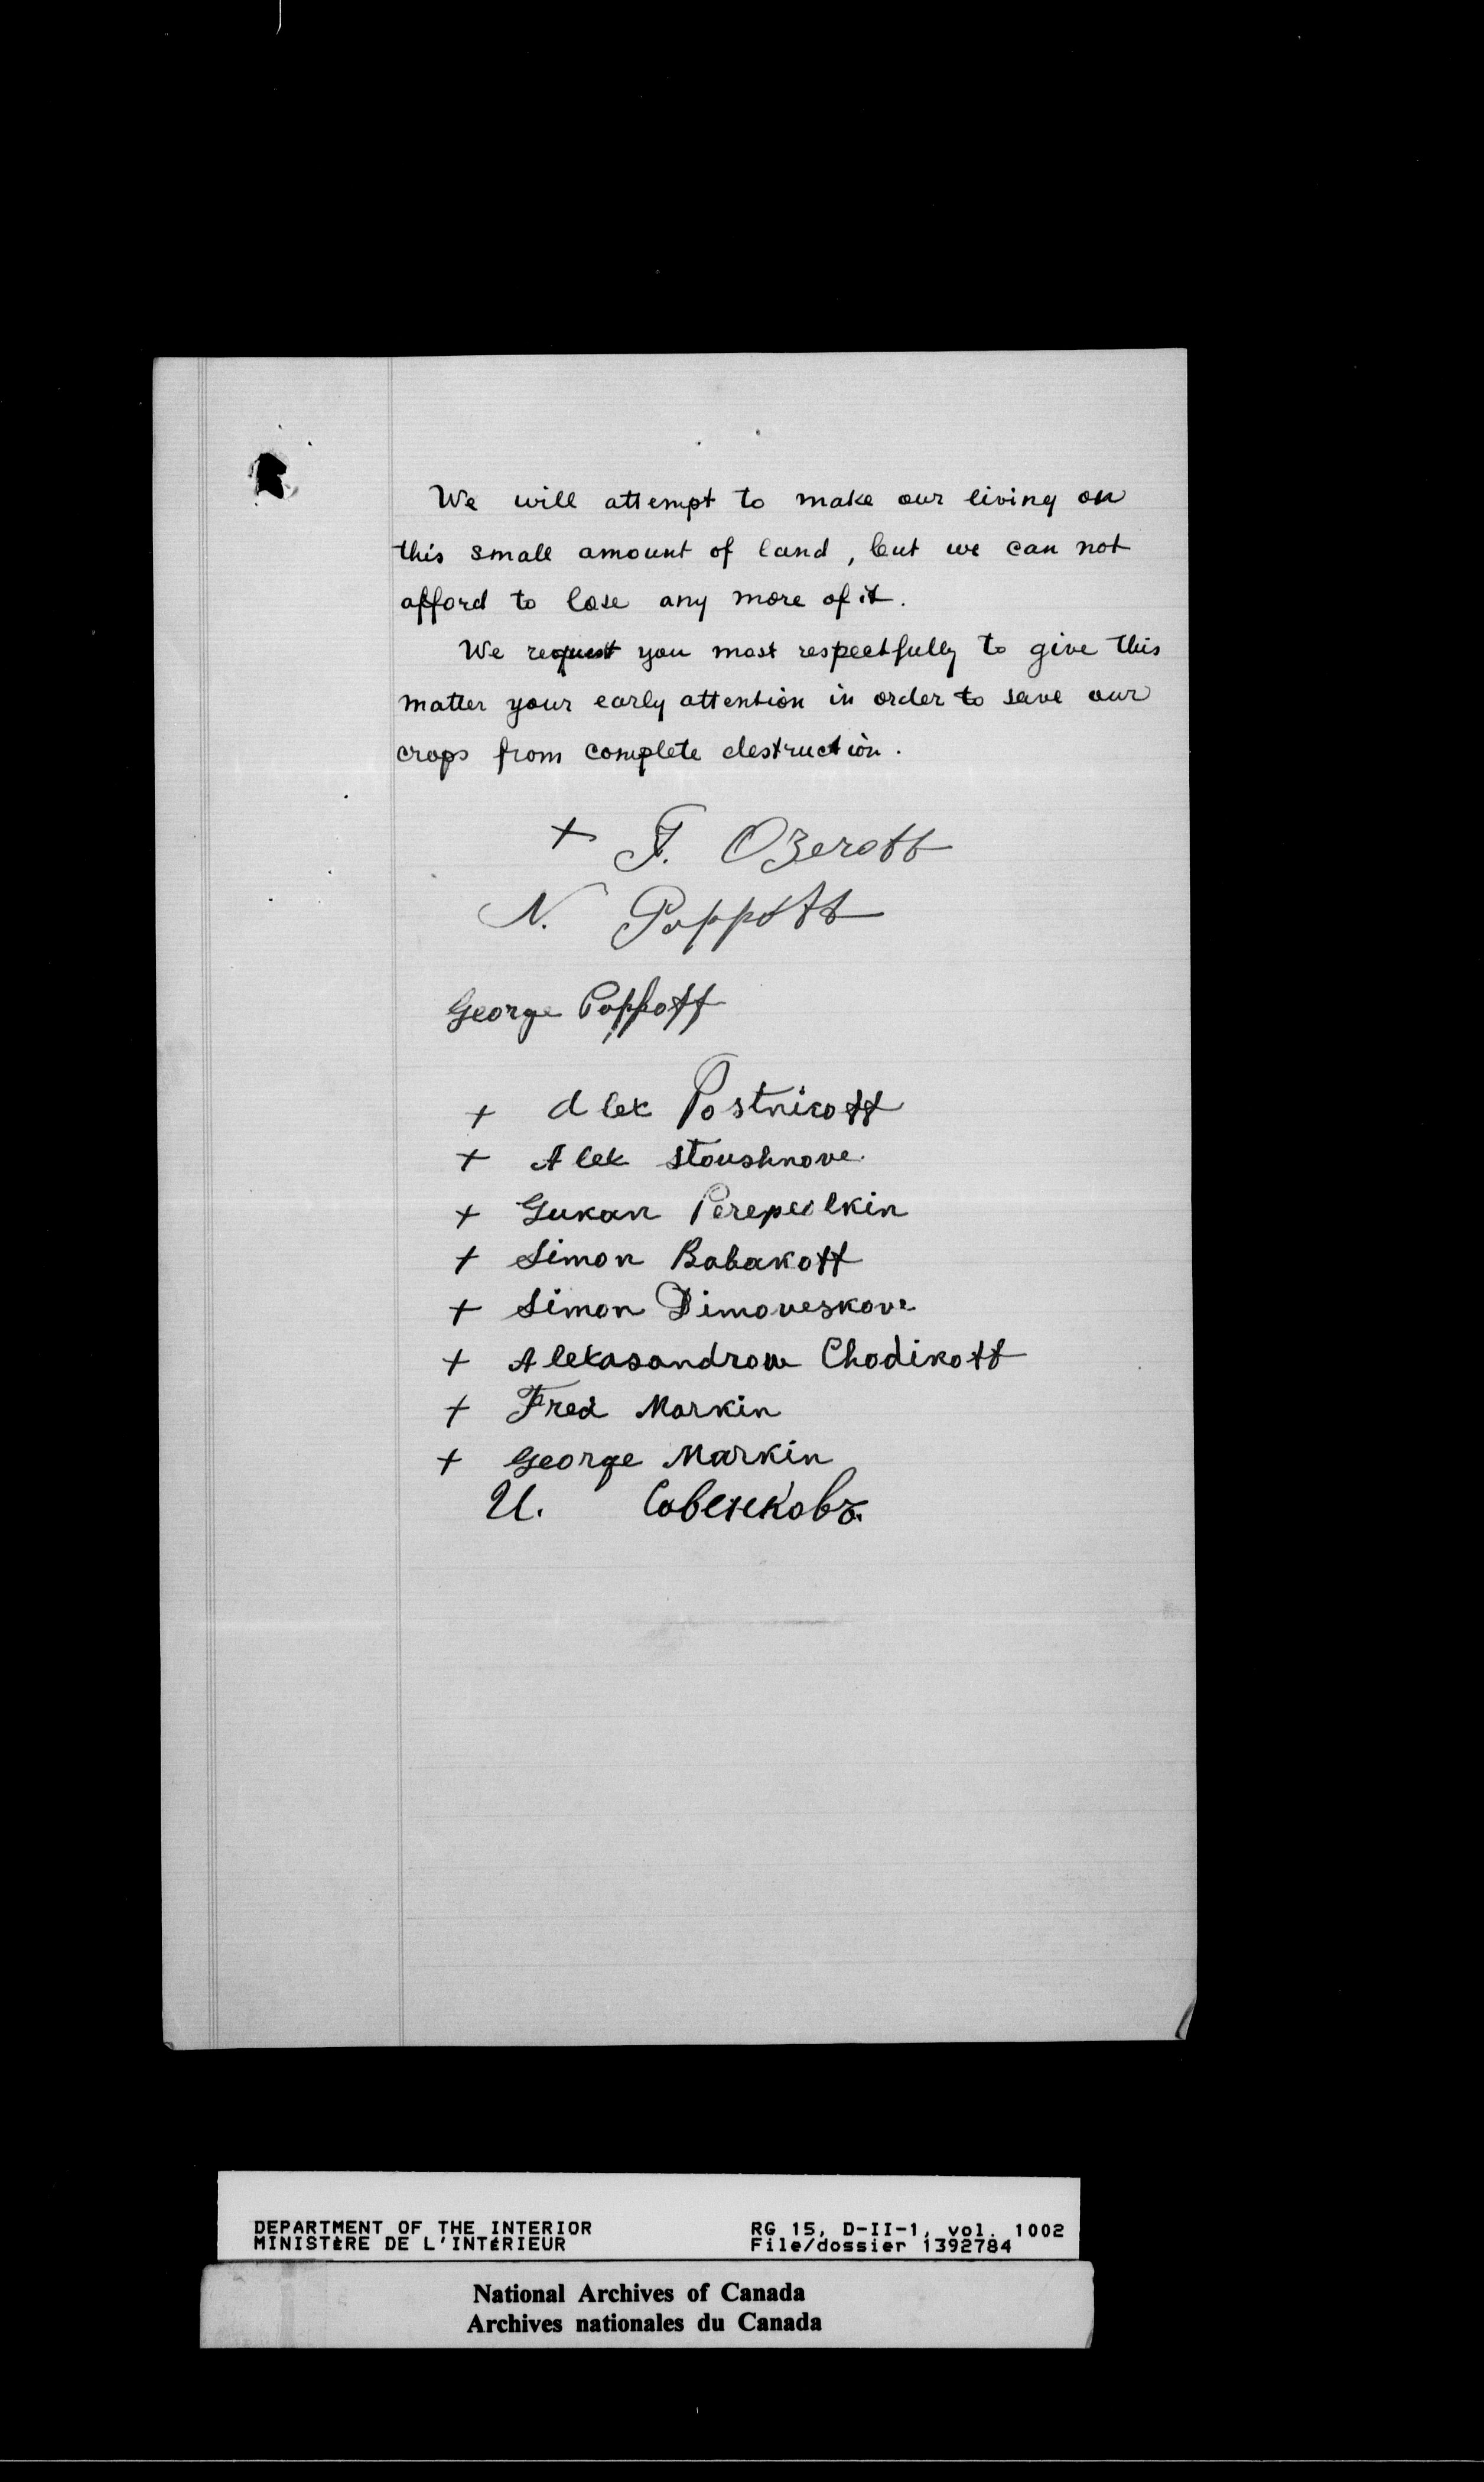 We will attempt to make our living on
this small amount of land, but we can not
afford to lose any more of it.
We request you most respectfully to give this
matter your early attention in order to save our
crops from complete destruction.
+ F. Ozeroff
N. Poppoff
George Poppoff
+ Alex Postnikoff
+ Alek Stoushnove.
+ Gukan Perepeolkin
+ Simon Babakoff
+ Simon Dimoveskove
+ Alekasandrow Chodikoff
+ Fred Markin
+ George Markin
И. Совенковъ.
DEPARTMENT OF THE INTERIOR RG 15, D-II-1, vol. 1002
MINISTÈRE DE L'INTÉRIEUR File/dossier 1392784
National Archives of Canada
Archives nationales du Canada